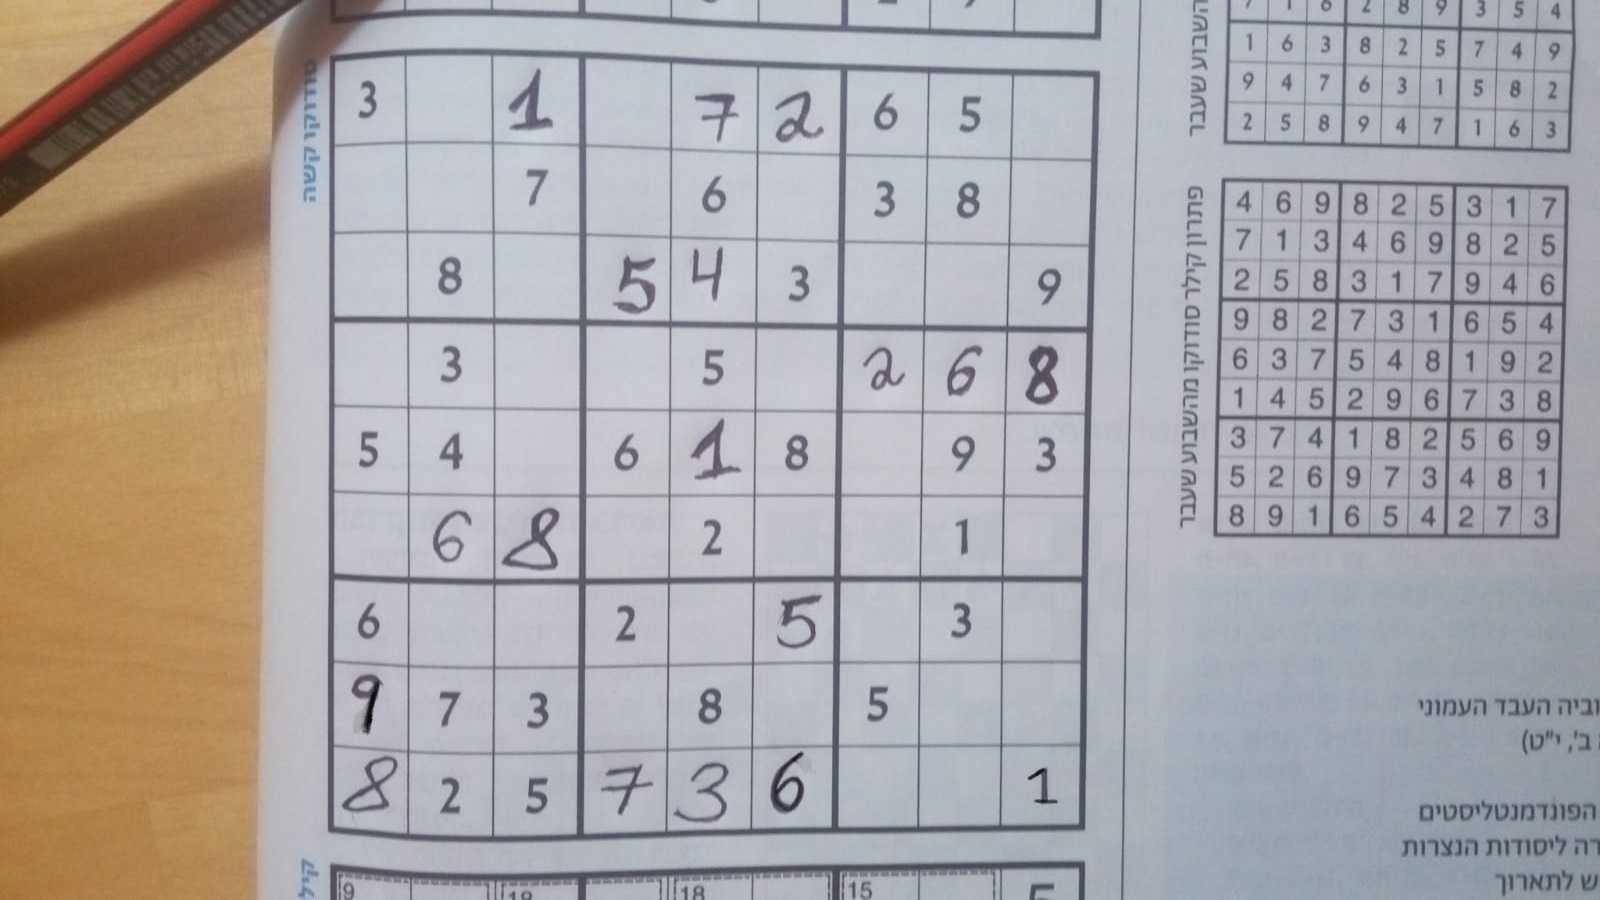 סודוקו קשה
3 1 7 2 6 5
7 6 3 8
8 5 4 3 9
3 5 2 6 8
5 4 6 1 8 9 3
6 8 2 1
6 2 5 3
9 7 3 8 5
8 2 5 7 3 6 1
9 18 18 15 5
השבוע שעבר
7 1 6 2 8 9 3 5 4
1 6 3 8 2 5 7 4 9
9 4 7 6 3 1 5 8 2
2 5 8 9 4 7 1 6 3
פתרון קילר סודוקו מהשבוע שעבר
4 6 9 8 2 5 3 1 7
7 1 3 4 6 9 8 2 5
2 5 8 3 1 7 9 4 6
9 8 2 7 3 1 6 5 4
6 3 7 5 4 8 1 9 2
1 4 5 2 9 6 7 3 8
3 7 4 1 8 2 5 6 9
5 2 6 9 7 3 4 8 1
8 9 1 6 5 4 2 7 3
וביה העבד העמוני
ב', י"ט)
הפונדמנטליסטים
רה ליסודות הנצרות
ש לתארוך